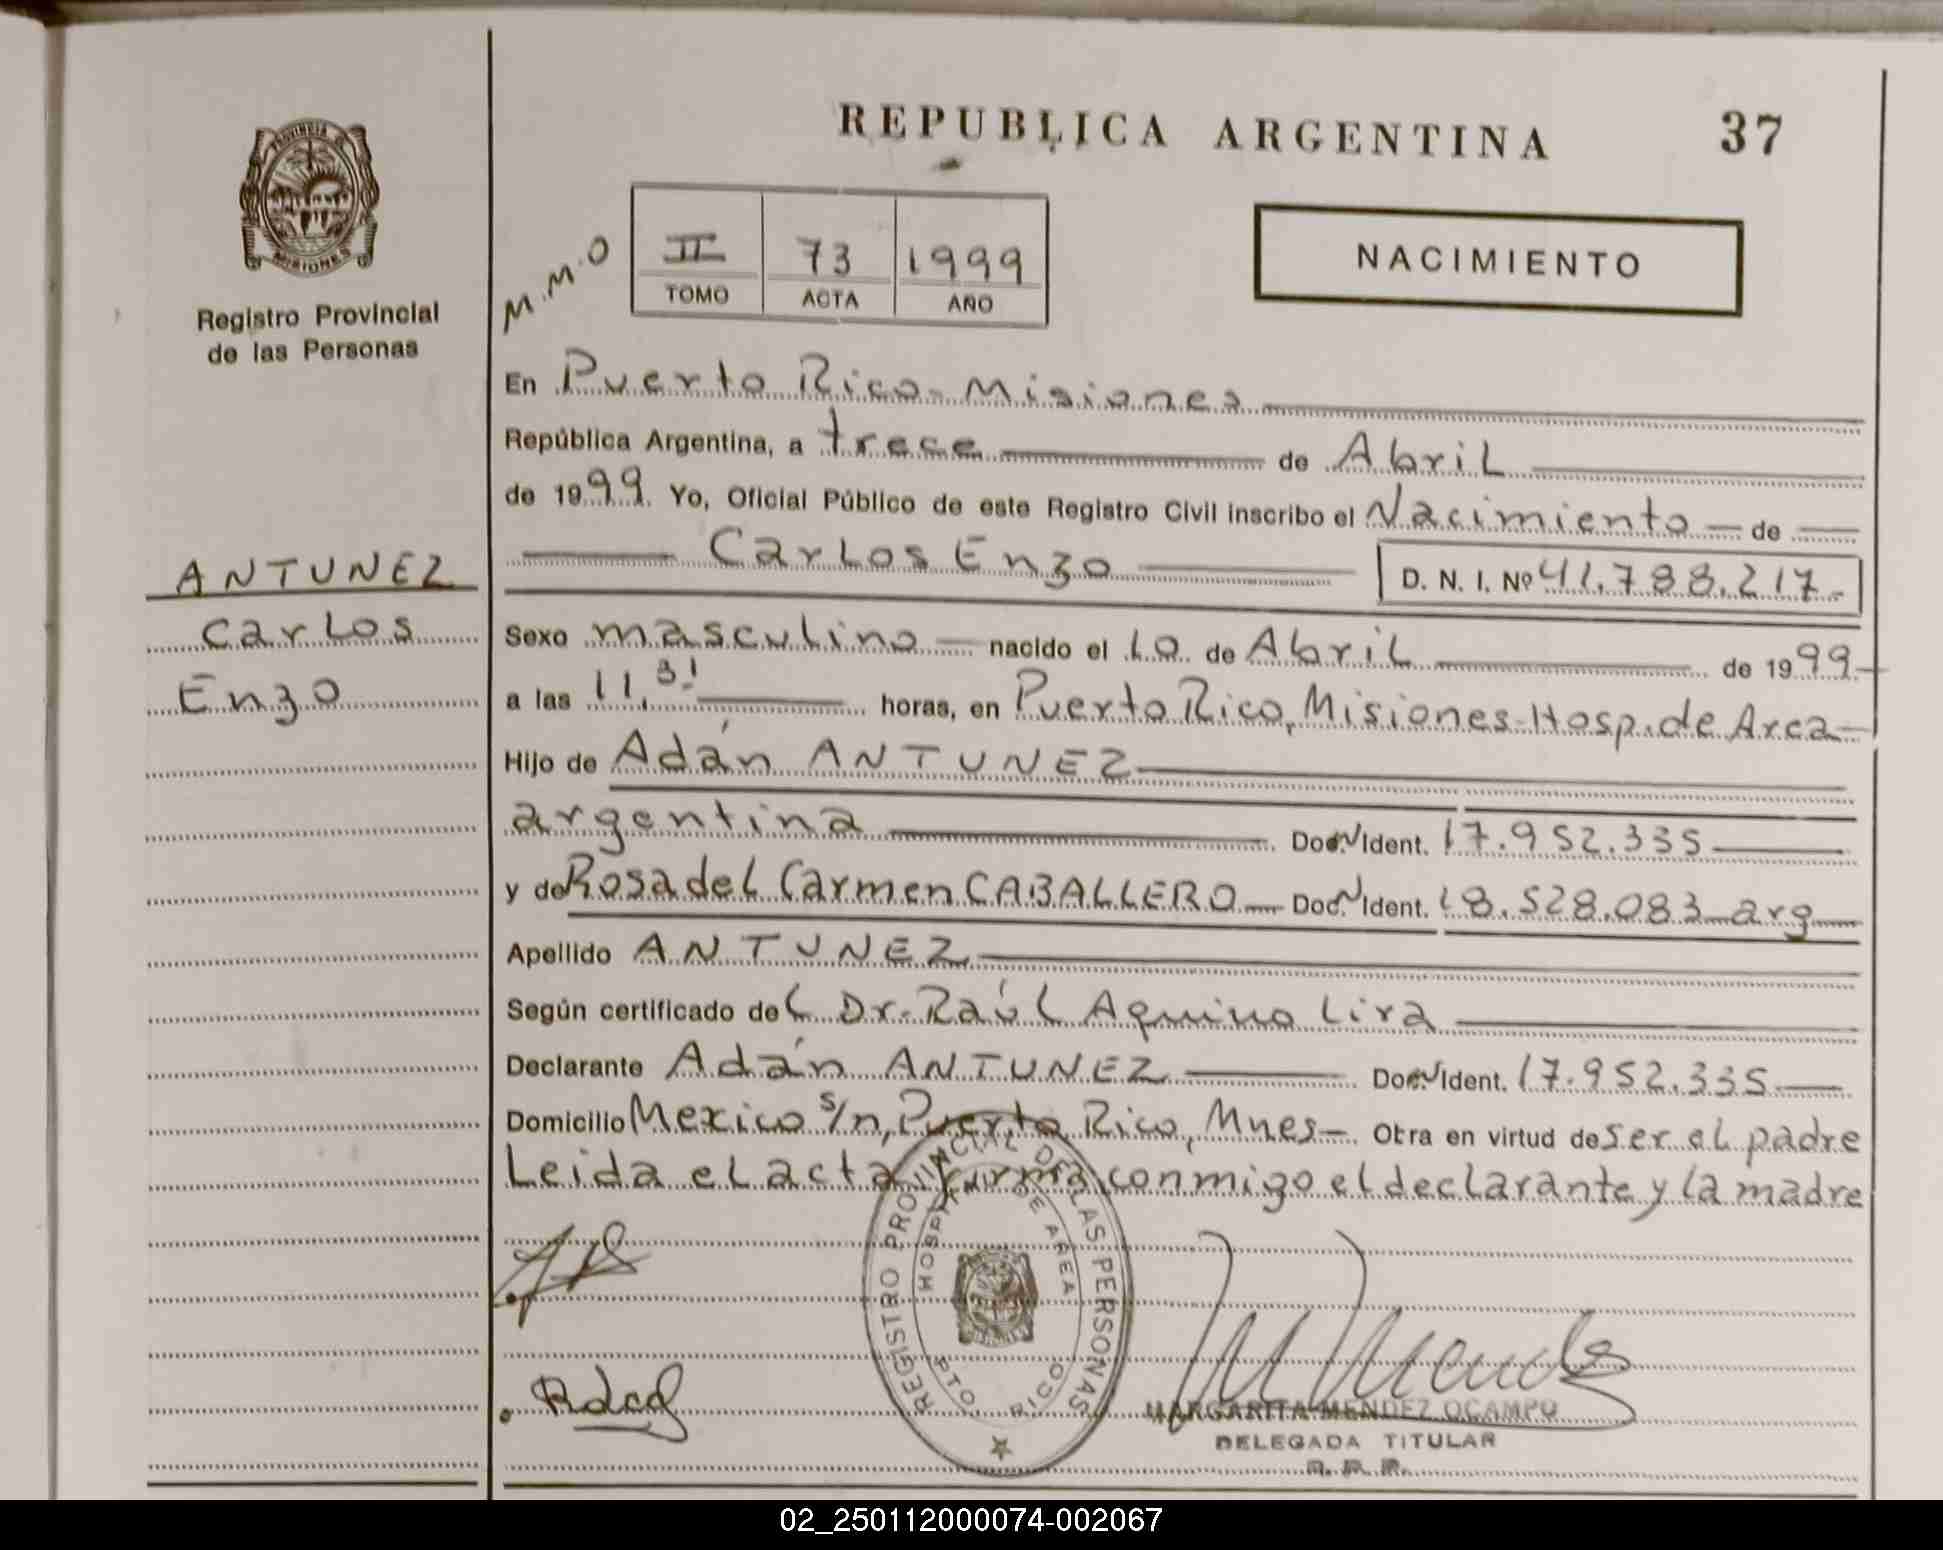 REPUBLICA ARGENTINA 37
PROVINCIA
MISIONES
Registro Provincial
de las Personas
M.M.O
II 73 1999
TOMO ACTA AÑO
NACIMIENTO
En Puerto Rico - Misiones
República Argentina, a trece de Abril
de 1999. Yo, Oficial Público de este Registro Civil inscribo el Nacimiento de
Carlos Enzo D. N. I. Nº 41.788.217.-
ANTUNEZ
Carlos
Enzo
Sexo masculino nacido el 10 de Abril de 1999
a las 11,31 horas, en Puerto Rico, Misiones-Hosp. de Area
Hijo de Adán ANTUNEZ
argentina Doc. Ident. 17.952.335
y de Rosa del Carmen CABALLERO Doc. Ident. 18.528.083 arg
Apellido ANTUNEZ
Según certificado del Dr. Raúl Aquino Lira
Declarante Adán ANTUNEZ Doc. Ident. 17.952.335
Domicilio Mexico s/n, Puerto Rico, Mnes Obra en virtud de ser el padre
Leida el acta firma conmigo el declarante y la madre
REGISTRO PROVINCIAL DE LAS PERSONAS
HOSPITAL DE AREA
PTO. RICO
MARGARITA MENDEZ OCAMPO
DELEGADA TITULAR
R. P. P.
02_250112000074-002067